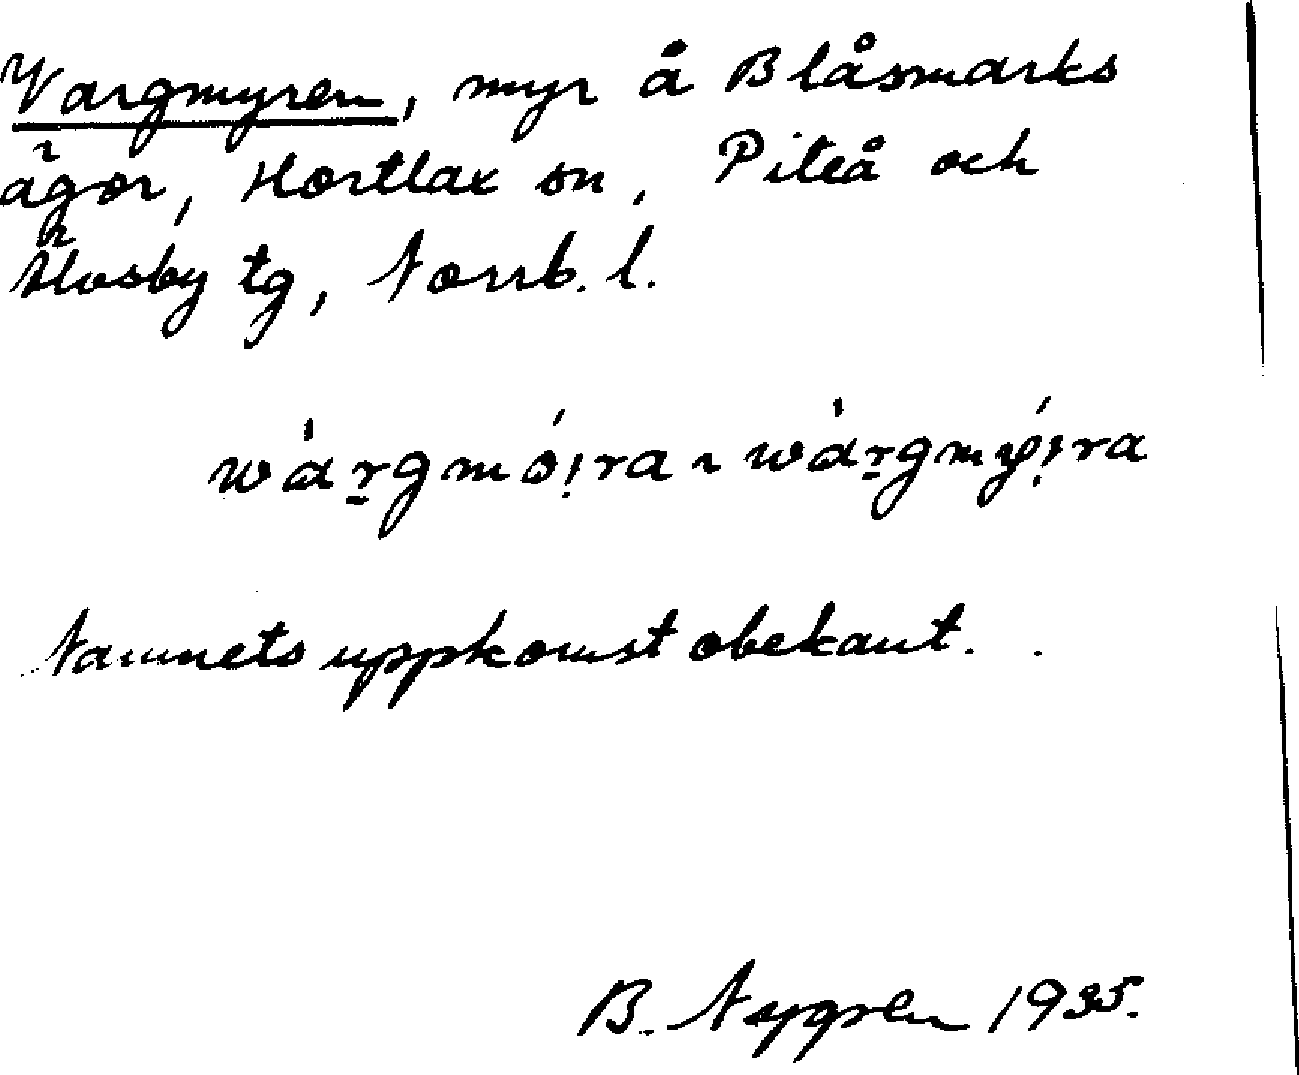 Vargmyren, myr å Blåsmarks
ägor, Hortlax sn, Piteå och
Älvsby tg, Norrb. l.
wàrgmó:ra ~ wàrgmý:ra
Namnets uppkomst obekant.
B. Nygren 1935.